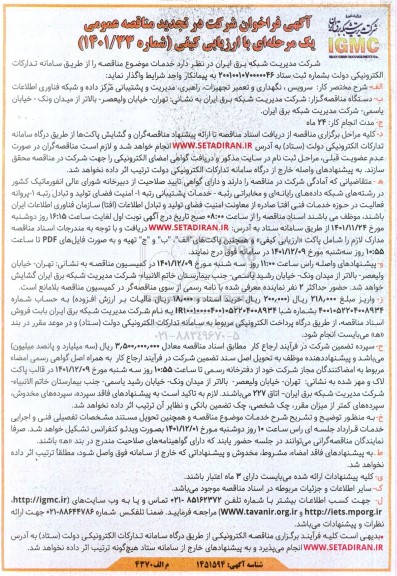 شرکت مدیریت شبکه برق ایران
IGMC
IRAN GRID MANAGEMENT CO.
آگهی فراخوان شرکت در تجدید مناقصه عمومی
یک مرحله‌ای با ارزیابی کیفی (شماره ۱۴۰۱/۳۳)
شرکت مدیریت شبکه برق ایران در نظر دارد خدمات موضوع مناقصه را از طریق سامانه تدارکات
الکترونیکی دولت بشماره ثبت ستاد ۲۰۰۱۰۰۱۰۷۰۰۰۰۴۶ به پیمانکار واجد شرایط واگذار نماید:
الف- شرح مختصر کار: سرویس، نگهداری و تعمیر تجهیزات، راهبری، مدیریت و پشتیبانی مرکز داده و شبکه فناوری اطلاعات
ب- دستگاه مناقصه‌گزار: شرکت مدیریت شبکه برق ایران به نشانی: تهران- خیابان ولیعصر- بالاتر از میدان ونک - خیابان
یاسمی- شرکت مدیریت شبکه برق ایران
ج- مدت انجام کار: ۲۴ ماه
د- کلیه مراحل برگزاری مناقصه از دریافت اسناد مناقصه تا ارائه پیشنهاد مناقصه‌گران و گشایش پاکت‌ها از طریق درگاه سامانه
تدارکات الکترونیکی دولت (ستاد) به آدرس WWW.SETADIRAN.IR انجام خواهد شد و لازم است مناقصه‌گران در صورت
عدم عضویت قبلی، مراحل ثبت نام در سایت مذکور و دریافت گواهی امضای الکترونیکی را جهت شرکت در مناقصه محقق
سازند. به پیشنهادهای واصله خارج از درگاه سامانه تدارکات الکترونیکی دولت ترتیب اثر داده نخواهد شد.
ه- متقاضیانی که آمادگی شرکت در مناقصه را دارند و دارای گواهی تایید صلاحیت از دبیرخانه شورای عالی انفورماتیک کشور
در رشته‌های شبکه داده‌های رایانه‌ای و مخابراتی رتبه - خدمات پشتیبانی رتبه ۱- امنیت فضای تولید و تبادل رتبه ۱- پروانه
فعالیت در حوزه خدمات فنی افتا صادره از معاونت امنیت فضای تولید و تبادل اطلاعات (افتا) سازمان فناوری اطلاعات ایران
باشند، موظف می باشند اسناد مناقصه را از ساعت ۰۸:۰۰ صبح تاریخ درج آگهی نوبت اول لغایت ساعت ۱۶:۱۵ روز دوشنبه
مورخ ۱۴۰۱/۱۱/۲۴ از طریق سامانه ستاد به آدرس: WWW.SETADIRAN.IR دریافت و با توجه به مندرجات اسناد مناقصه
مدارک لازم را شامل پاکت «ارزیابی کیفی» و همچنین پاکت‌های "الف"، "ب" و "ج" تهیه و به صورت فایل‌های PDF تا ساعت
۱۰:۵۵ روز سه‌شنبه مورخ ۱۴۰۱/۱۲/۰۹ در سامانه فوق درج نمایند.
و- پیشنهادهای واصله راس ساعت ۱۱:۰۰ روز سه شنبه مورخ ۱۴۰۱/۱۲/۰۹ در کمیسیون مناقصه به نشانی: تهران- خیابان
ولیعصر- بالاتر از میدان ونک- خیابان رشید یاسمی- جنب بیمارستان خاتم الانبیاء- شرکت مدیریت شبکه برق ایران گشایش
خواهد شد. حضور حداکثر ۲ نفر نماینده معرفی شده با نامه رسمی از سوی مناقصه‌گر در کمیسیون مناقصه بلامانع است.
ز- واریز مبلغ ۲۱۸,۰۰۰ ریال (۲۰۰,۰۰۰ ریال خرید اسناد و ۱۸,۰۰۰ ریال مالیات بر ارزش افزوده) به حساب شماره
۴۰۰۱۰۵۲۲۰۴۰۰۸۹۳۴ به شماره شبا به نام شرکت مدیریت شبکه برق ایران بابت فروش
اسناد مناقصه، از طریق درگاه پرداخت الکترونیکی مربوط به سامانه تدارکات الکترونیکی دولت (ستاد) و در موعد مقرر در بند
«ه» می‌بایست انجام شود.
ح- سپرده تضمین شرکت در فرآیند ارجاع کار مطابق اسناد مناقصه معادل ۳,۵۰۰,۰۰۰,۰۰۰ ریال (سه میلیارد و پانصد میلیون)
می‌باشد و پیشنهاددهنده موظف به تحویل اصل سند تضمین شرکت در فرآیند ارجاع کار به همراه اصل گواهی رسمی امضاء
مربوط به امضاکنندگان مجاز شرکت خود از دفترخانه رسمی تا ساعت ۱۰:۵۵ روز سه شنبه مورخ ۱۴۰۱/۱۲/۰۹ در قالب پاکت
لاک و مهر شده به نشانی: تهران- خیابان ولیعصر- بالاتر از میدان ونک- خیابان رشید یاسمی- جنب بیمارستان خاتم الانبیاء-
شرکت مدیریت شبکه برق ایران- اتاق ۲۲۷ می‌باشند. لازم به تاکید است به پیشنهادهای فاقد سپرده، سپرده‌های مخدوش،
سپرده‌های کمتر از میزان مقرر، چک شخصی، چک تضمین بانکی و نظایر آن ترتیب اثر داده نخواهد شد.
خ- به منظور توضیح و تشریح شرح خدمات موضوع مناقصه و همچنین تحویل مستند مشخصات تفصیلی فنی و اجرایی
خدمات قرارداد جلسه ای راس ساعت ۱۰ روز دوشنبه مورخ ۱۴۰۱/۱۲/۰۱ بصورت ویدئو کنفرانس تشکیل خواهد شد. صرفا
نمایندگان مناقصه‌گرانی می‌توانند در جلسه حضور یابند که دارای گواهینامه‌های صلاحیت مندرج در بند «ه» باشند.
ط- به پیشنهادهای فاقد امضاء، مشروط، مخدوش و پیشنهاداتی که خارج از سامانه فوق واصل شود، مطلقاً ترتیب اثر داده
نخواهد شد.
ی- کلیه پیشنهادات ارائه شده می‌بایست دارای ۳ ماه اعتبار باشند.
ک- سایر اطلاعات و جزئیات مربوطه در اسناد مناقصه موجود می‌باشد.
ل- جهت کسب اطلاعات بیشتر با شماره تلفن ۸۵۱۶۲۳۷۲-۰۲۱ تماس و یا به وب سایت‌های (http://igmc.ir،
http://iets.mporg.ir و WWW.tavanir.org.ir) مراجعه فرمایید. ضمناً تلفکس شماره ۸۸۶۴۴۷۸۶-۰۲۱ جهت ارائه
نظرات و پیشنهادات می‌باشد.
بدیهی است کلیه فرآیند برگزاری مناقصه الکترونیکی از طریق درگاه سامانه تدارکات الکترونیکی دولت (ستاد) به آدرس:
WWW.SETADIRAN.IR انجام می‌پذیرد و به پیشنهادهای خارج از سامانه ستاد هیچ‌گونه ترتیب اثر داده نخواهد شد.
شناسه آگهی: ۱۴۵۱۵۹۴ م الف-۴۳۷۰